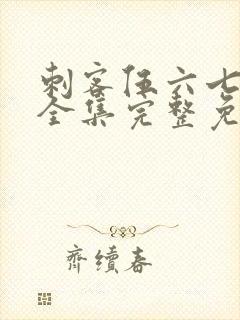 刺客伍六七
全集完整免
齐續春